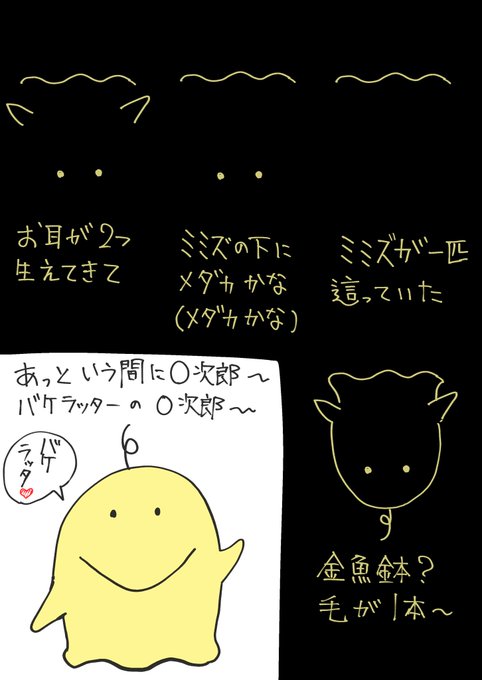 ミミズが一匹
這っていた
ミミズの下に
メダカかな
(メダカかな)
お耳が2つ
生えてきて
金魚鉢?
毛が1本〜
あっという間に〇次郎〜
バケラッターの〇次郎〜
バケ
ラッタ♥